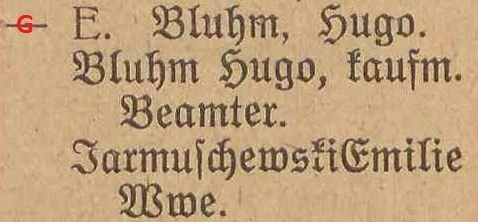 G E. Bluhm, Hugo.
Bluhm Hugo, kaufm.
Beamter.
Jarmuſchewski Emilie
Wwe.